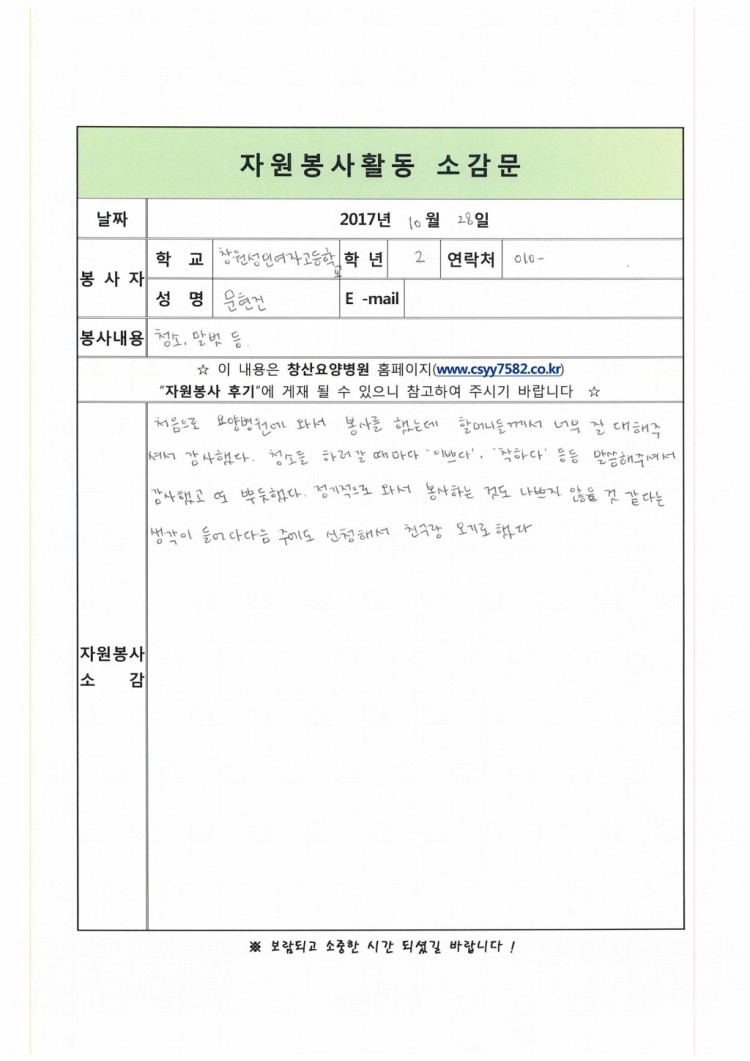 자원봉사활동 소감문
날짜 2017년 10월 28일
봉 사 자
학 교 창원성민여자고등학교 학 년 2 연락처 010-
성 명 문현진 E -mail
봉사내용 청소, 말벗 등.
☆ 이 내용은 창산요양병원 홈페이지(www.csyy7582.co.kr)
"자원봉사 후기"에 게재 될 수 있으니 참고하여 주시기 바랍니다 ☆
처음으로 요양병원에 와서 봉사를 했는데 할머니들께서 너무 잘 대해주
셔서 감사했다. 청소를 하러갈 때마다 '이쁘다', '착하다' 등등 말씀해주셔서
감사했고 또 뿌듯했다. 정기적으로 와서 봉사하는 것도 나쁘지 않을 것 같다는
생각이 들어 다다음 주에도 신청해서 친구랑 오기로 했다
자원봉사
소 감
※ 보람되고 소중한 시간 되셨길 바랍니다 !